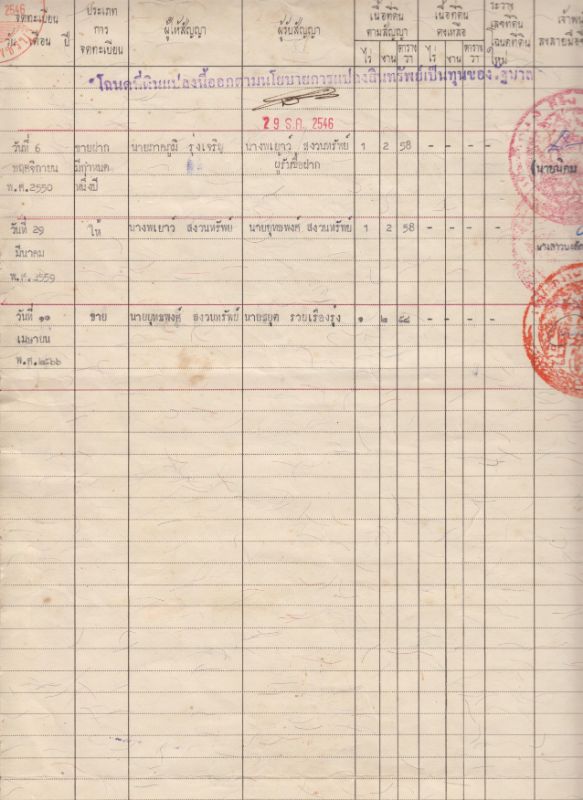 2546
จดทะเบียน
วัน เดือน ปี
ประเภท
การ
จดทะเบียน
ผู้ให้สัญญา
ผู้รับสัญญา
เนื้อที่ดิน
ตามสัญญา
ไร่ งาน ตาราง
วา
เนื้อที่ดิน
คงเหลือ
ไร่ งาน ตาราง
วา
ระวาง
เลขที่ดิน
โฉนดที่ดิน
ใหม่
โฉนดที่ดินแปลงนี้ออกตามนโยบายการแปลงสินทรัพย์เป็นทุนของ
29 ธ.ค. 2546
วันที่ 6 ขายฝาก นายภาคภูมิ รุ่งเจริญ นางพเยาว์ สงวนทรัพย์ 1 2 58 - - - -
พฤศจิกายน มีกำหนด ผู้รับซื้อฝาก
พ.ศ.2550 หนึ่งปี
(นายนิคม
วันที่ 29 ให้ นางพเยาว์ สงวนทรัพย์ นายยุทธพงศ์ สงวนทรัพย์ 1 2 58 - - - -
มีนาคม
พ.ศ. 2559
วันที่ ๑๑ ขาย นายยุทธพงศ์ สงวนทรัพย์ รวยเรืองรุ่ง ๑ ๒ ๕๘ - - - -
เมษายน
พ.ศ.๒๕๖๖